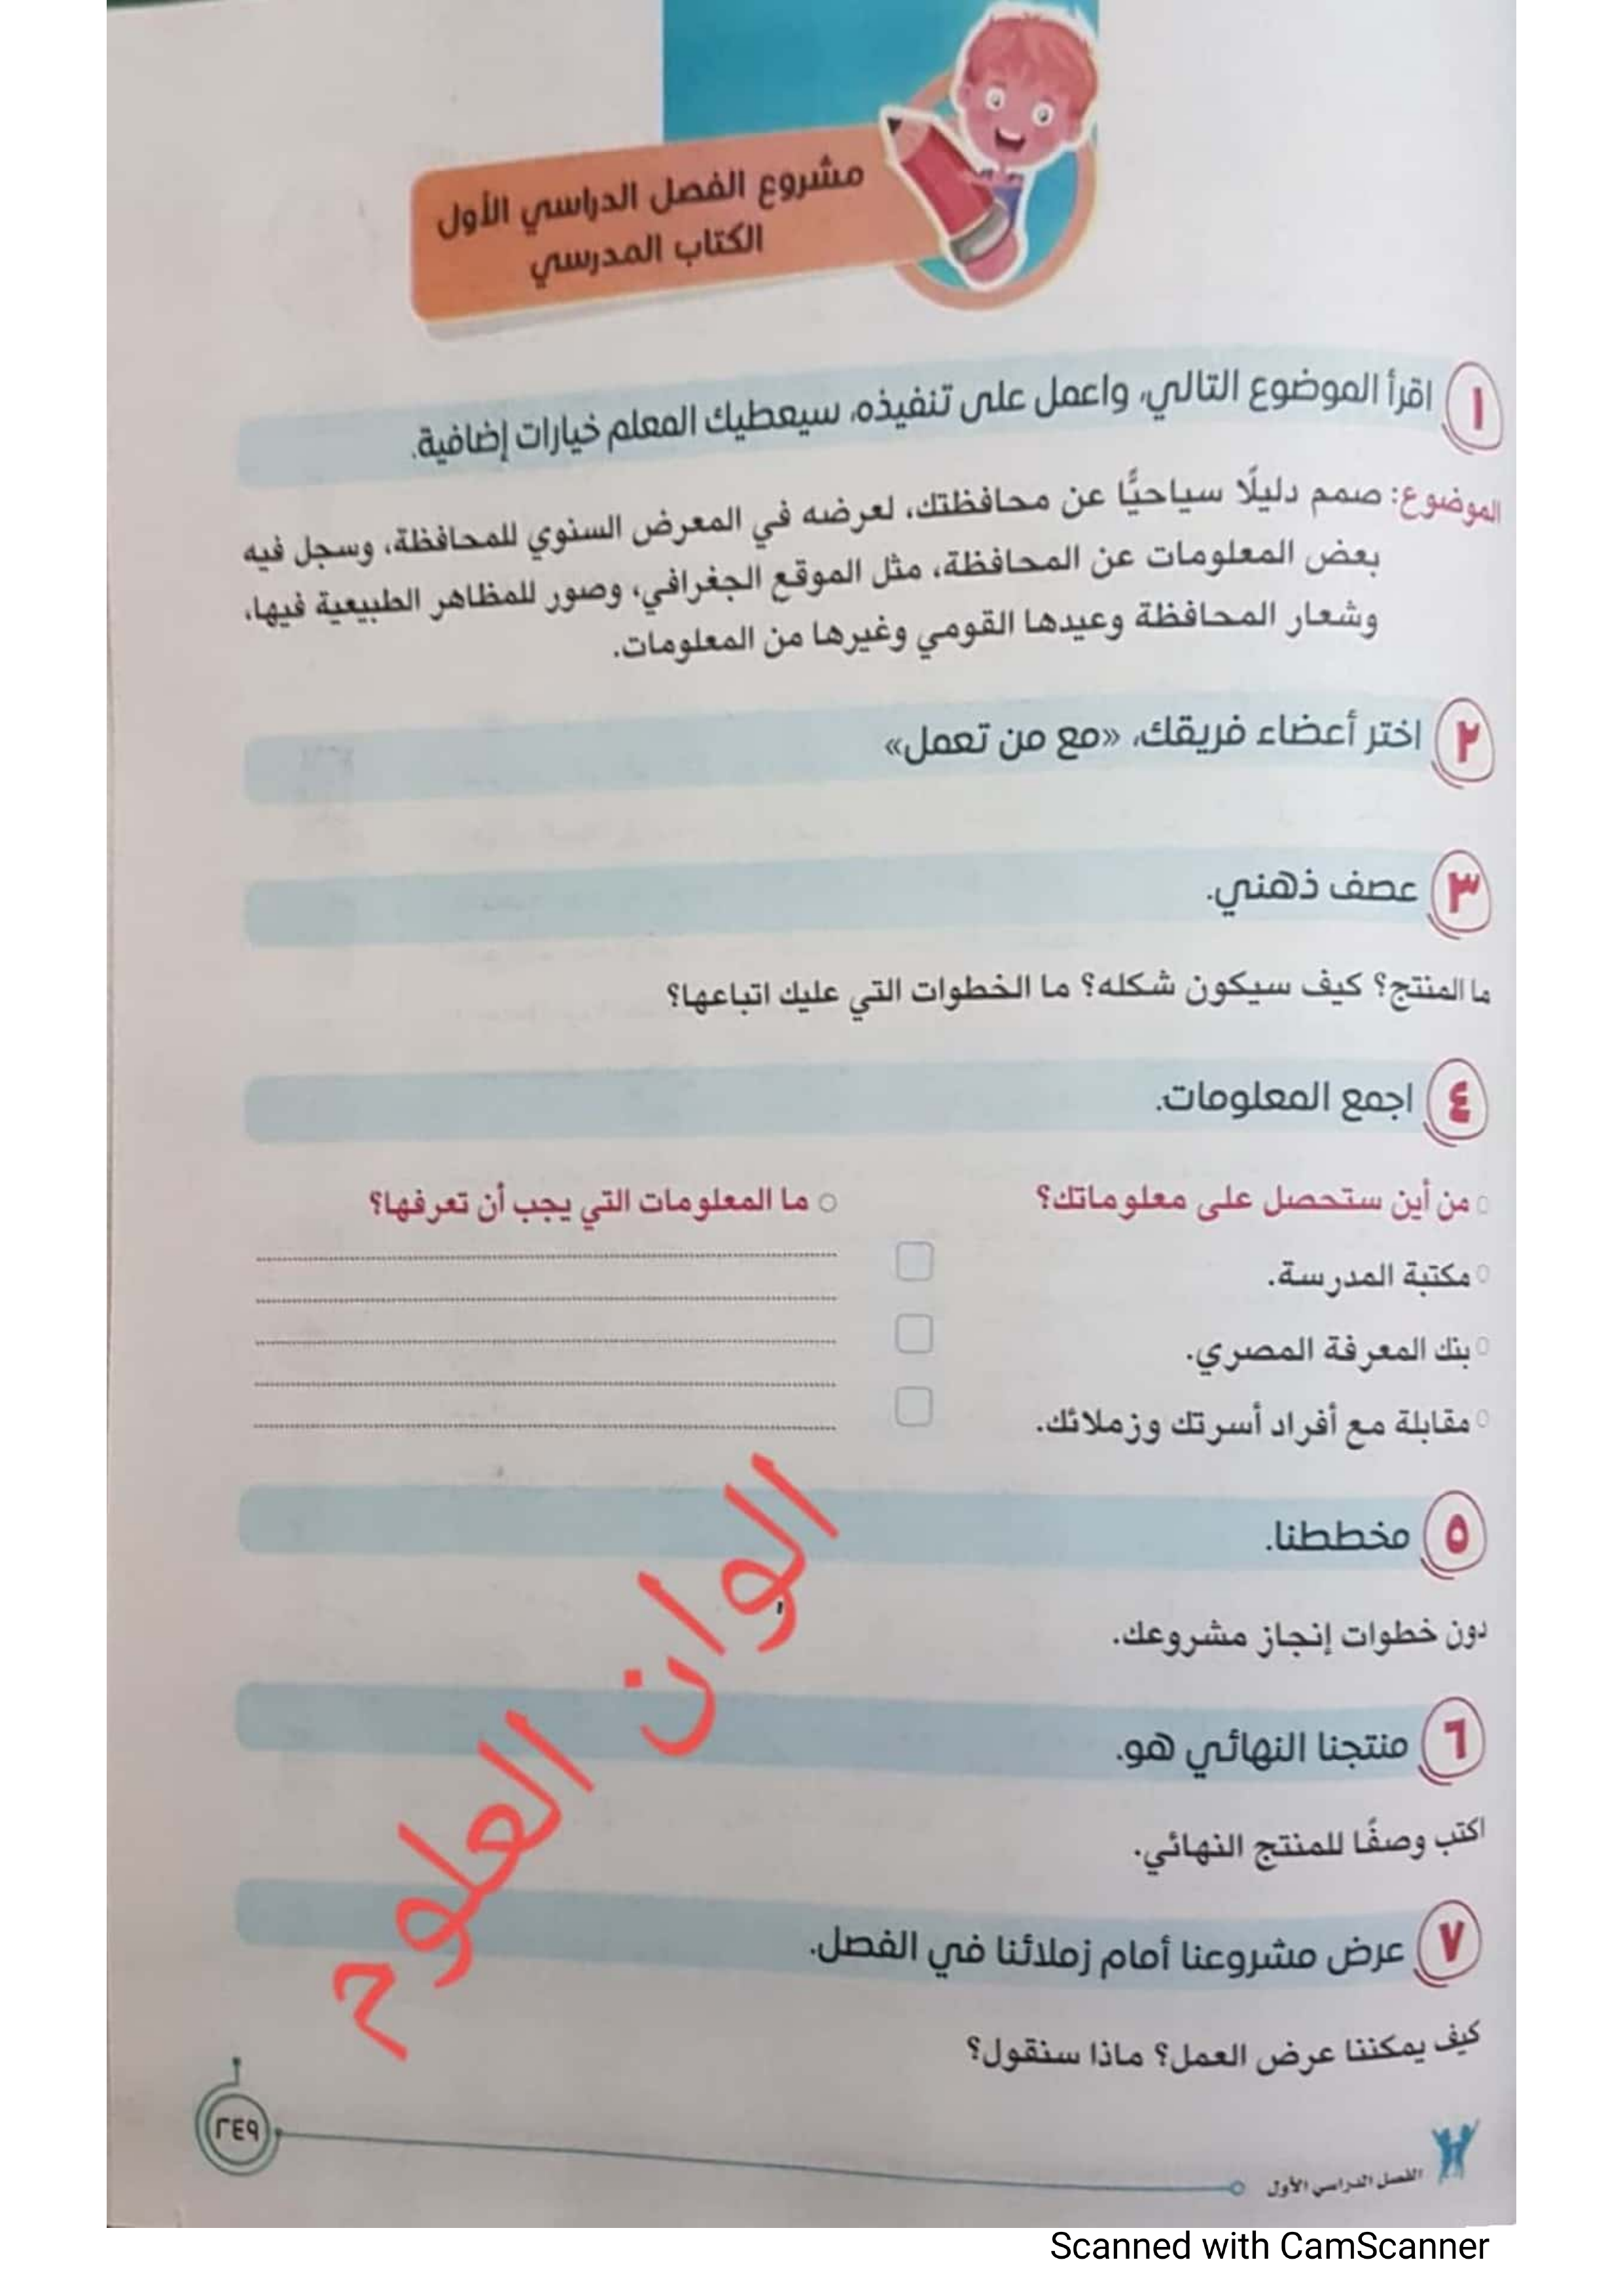 مشروع الفصل الدراسي الأول
الكتاب المدرسي
١ اقرأ الموضوع التالي، واعمل على تنفيذه، سيعطيك المعلم خيارات إضافية.
الموضوع: صمم دليلًا سياحيًّا عن محافظتك، لعرضه في المعرض السنوي للمحافظة، وسجل فيه
بعض المعلومات عن المحافظة، مثل الموقع الجغرافي، وصور للمظاهر الطبيعية فيها،
وشعار المحافظة وعيدها القومي وغيرها من المعلومات.
٢ اختر أعضاء فريقك، «مع من تعمل»
٣ عصف ذهني.
ما المنتج؟ كيف سيكون شكله؟ ما الخطوات التي عليك اتباعها؟
٤ اجمع المعلومات.
من أين ستحصل على معلوماتك؟
مكتبة المدرسة.
بنك المعرفة المصري.
مقابلة مع أفراد أسرتك وزملائك.
ما المعلومات التي يجب أن تعرفها؟
٥ مخططنا.
دون خطوات إنجاز مشروعك.
٦ منتجنا النهائي هو.
اكتب وصفًا للمنتج النهائي.
٧ عرض مشروعنا أمام زملائنا في الفصل.
كيف يمكننا عرض العمل؟ ماذا سنقول؟
الوان العلوم
الفصل الدراسي الأول
٢٤٩
Scanned with CamScanner